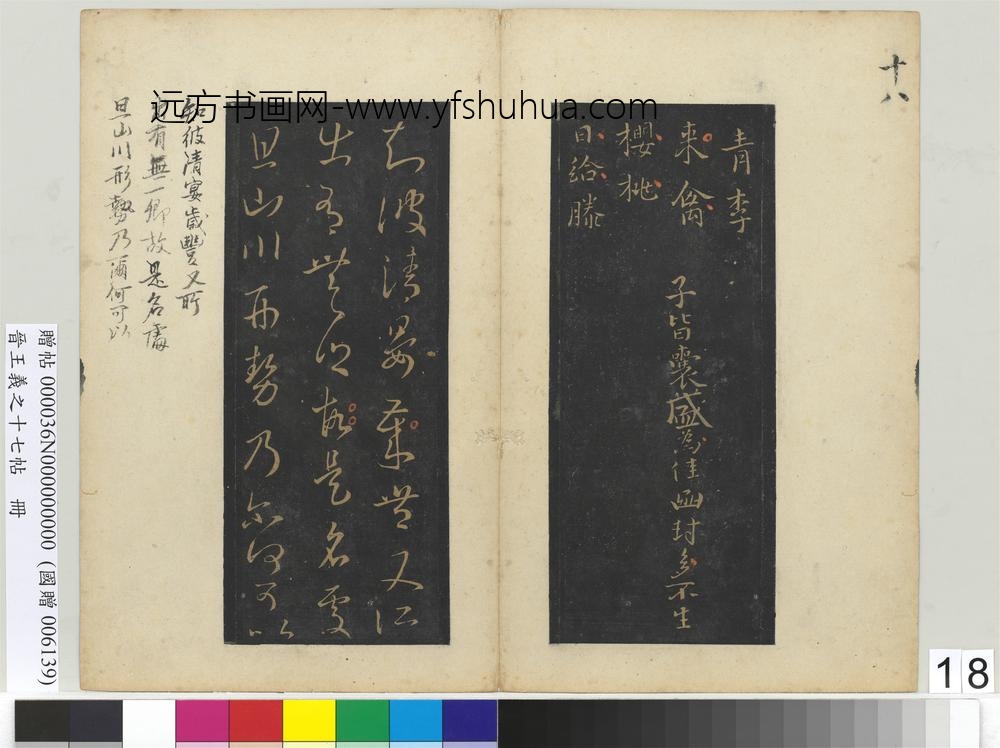 十八
青李
来禽
櫻桃
日給滕
子皆囊盛為佳函封多不生
知彼清晏歲豐又所
出有無一鄉故是名處
且山川形勢乃爾何可以
知彼清宴歲豐又所
出有無一鄉故是名處
且山川形勢乃爾何可以
远方书画网-www.yfshuhua.com
贈帖 000036N000000000 (國贈 006139)
晉王羲之十七帖 冊
18